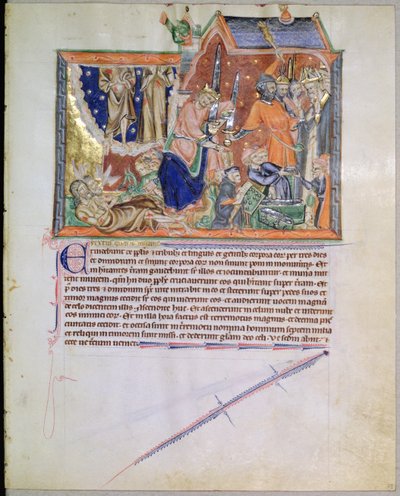 Et videbunt de pplis et tribubz et linguis et gentibz corpora eor per tres dies
et dimidium et corpora eor non sinunt poni in monumentis. Et
inhabitantes terram gaudebunt super illos et iocundabuntur et munera mit
tent invicem. qm hii duo pphe cruciaverunt eos qui habitant super terram. Et
post dies tres et dimidium sps vite intravit in eos et steterunt super pedes suos et
timor magnus cecidit sr eos qui viderunt eos. et audierunt vocem magnam
de celo dicentem illis. ascendite huc. Et ascenderunt in celum in nube et viderunt
eos inimici eor. Et in illa hora factus est terremotus magnus. et decima pars
civitatis cecidit. et occisa sunt in terremotu nomina hominum septem milia
et reliqui in timorem sunt missi. et dederunt gliam deo celi. Ve secdm abiit. et
ecce ve tercium veniet